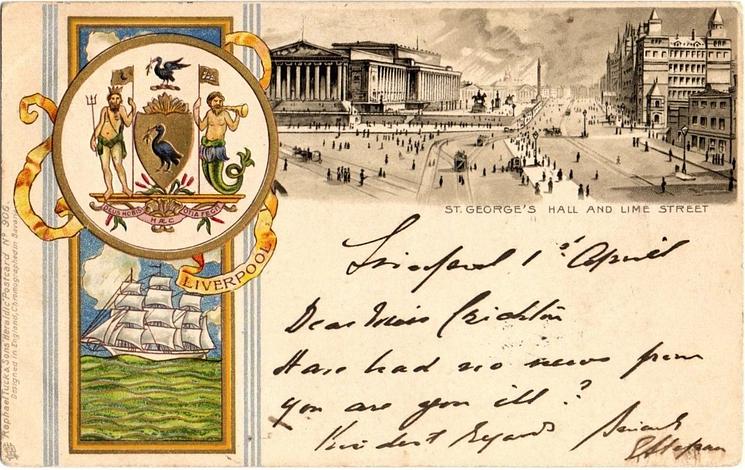 DEUS NOBIS HÆC OTIA FECIT
LIVERPOOL
Raphael Tuck & Sons' Heraldic Postcard Nº 905.
Designed in England, Chromographed in Bavaria
ST. GEORGE'S HALL AND LIME STREET
Liverpool 1st April
Dear Miss Crichton
Have had no news from
you are you ill?
Kindest Regards